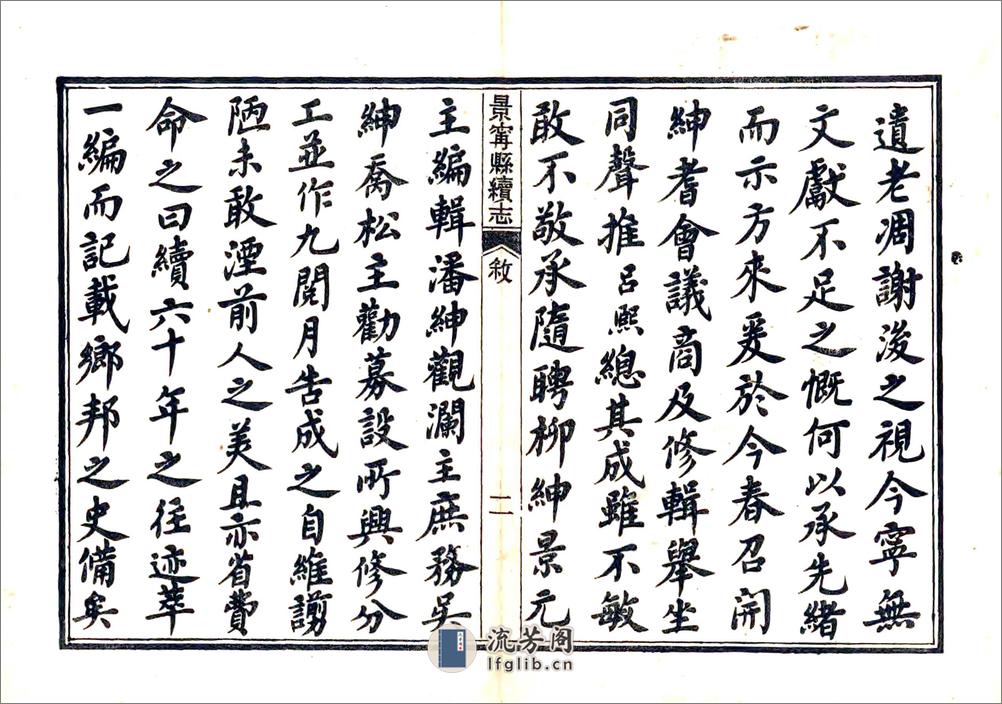 遺老凋謝後之視今寧無
文獻不足之慨何以承先緒
而示方來爰於今春召開
紳耆會議商及修輯舉坐
同聲推呂熙總其成雖不敏
敢不敬承隨聘柳紳景元
景寧縣續志
敘
二
主編輯潘紳觀瀾主庶務吳
紳喬松主勸募設所興修分
工並作九閱月吿成之自維謭
陋未敢湮前人之美且亦省費
命之曰續六十年之往迹萃
一編而記載鄉邦之史備矣
流芳阁
lfglib.cn